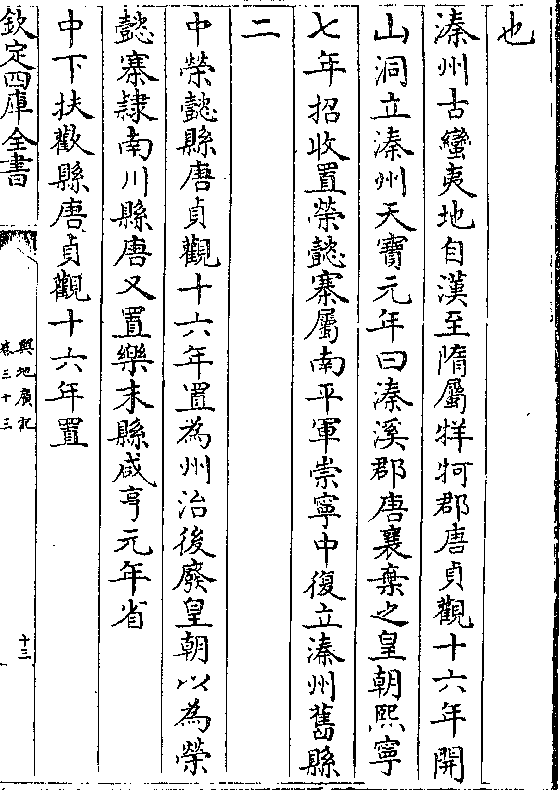 也
溱州古蠻夷地自漢至隋屬牂牁郡唐貞觀十六年開
山洞立溱州天寶元年曰溱溪郡唐衰棄之皇朝熙寧
七年招收置榮懿寨屬南平軍崇寧中復立溱州舊縣
二
中榮懿縣唐貞觀十六年置為州治後廢皇朝以為榮
懿寨隸南川縣唐又置樂來縣咸亨元年省
中下扶歡縣唐貞觀十六年置
欽定四庫全書
輿地廣記
卷三十三
十三